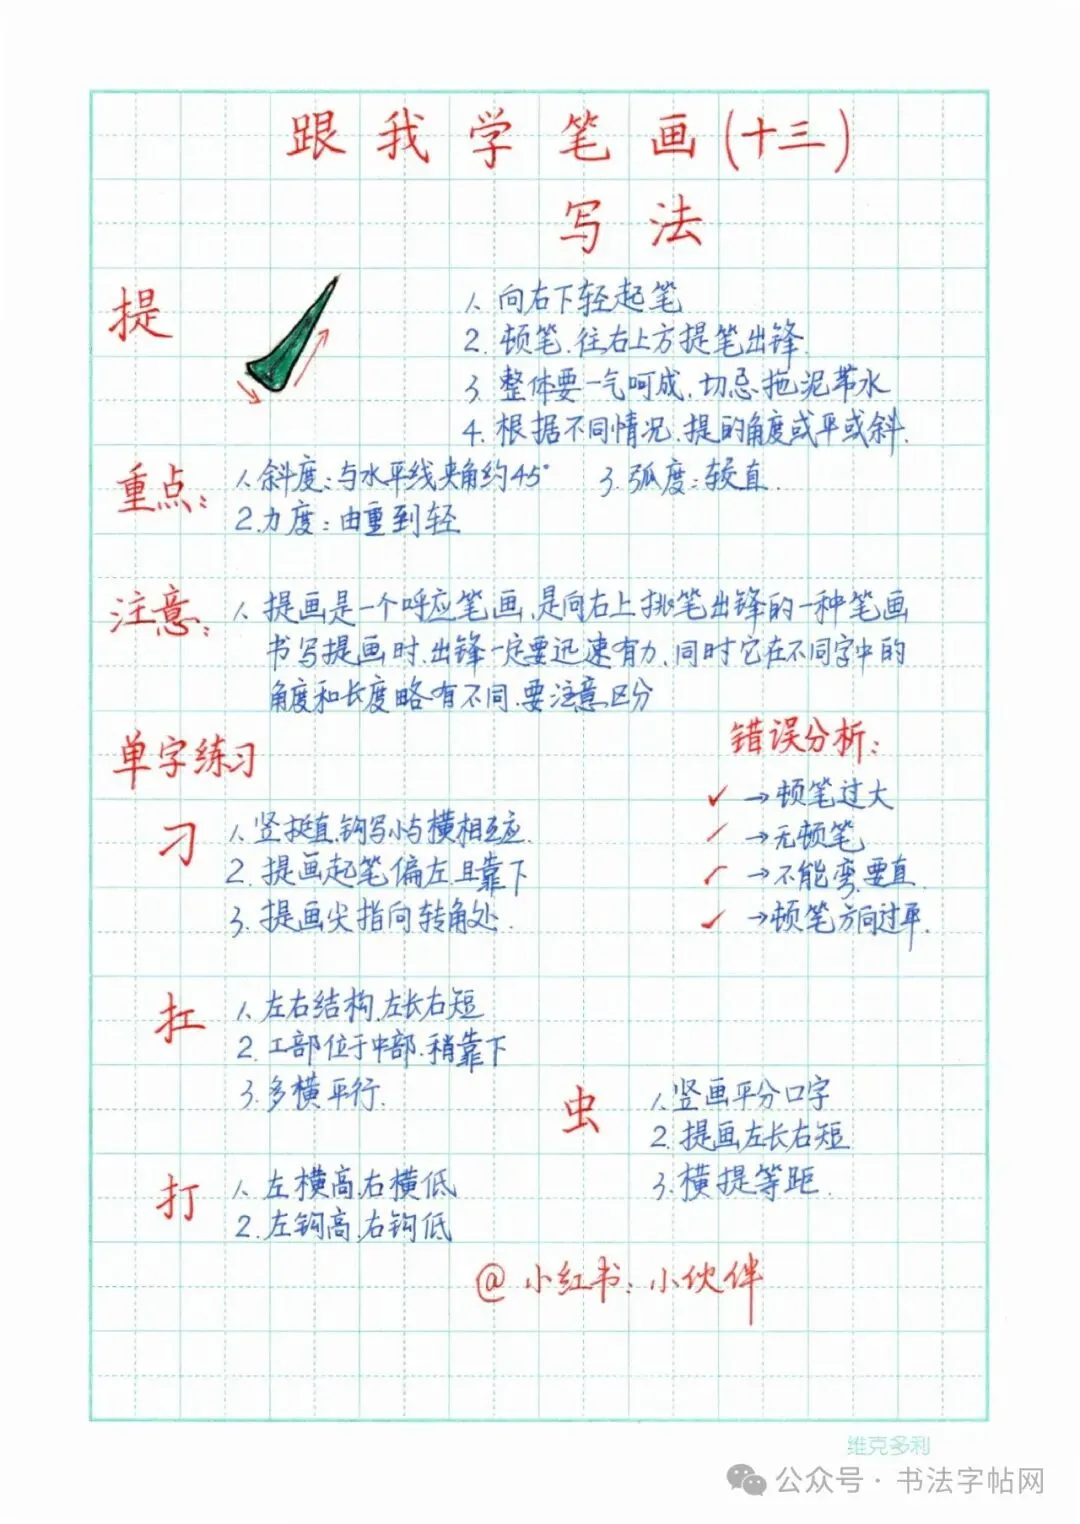 跟我学笔画(十三)
写法
提
1、向右下轻起笔
2、顿笔、往右上方提笔出锋.
3、整体要一气呵成、切忌拖泥带水
4、根据不同情况、提的角度或平或斜.
重点:
1、斜度:与水平线夹角约45° 3、弧度:较直.
2、力度:由重到轻
注意:
1、提画是一个呼应笔画、是向右上挑笔出锋的一种笔画
书写提画时、出锋一定要迅速有力、同时它在不同字中的
角度和长度略有不同、要注意区分
单字练习
刁
1、竖挺直、钩写小与横相互应.
2、提画起笔偏左、且靠下
3、提画尖指向转角处.
错误分析:
→顿笔过大
→无顿笔
→不能弯、要直.
→顿笔方向过平.
扛
1、左右结构、左长右短
2、工部位于中部、稍靠下
3、多横平行.
虫
1、竖画平分口字
2、提画左长右短
3、横提等距.
打
1、左横高、右横低
2、左钩高、右钩低
@小红书:小伙伴
维克多利
公众号·书法字帖网